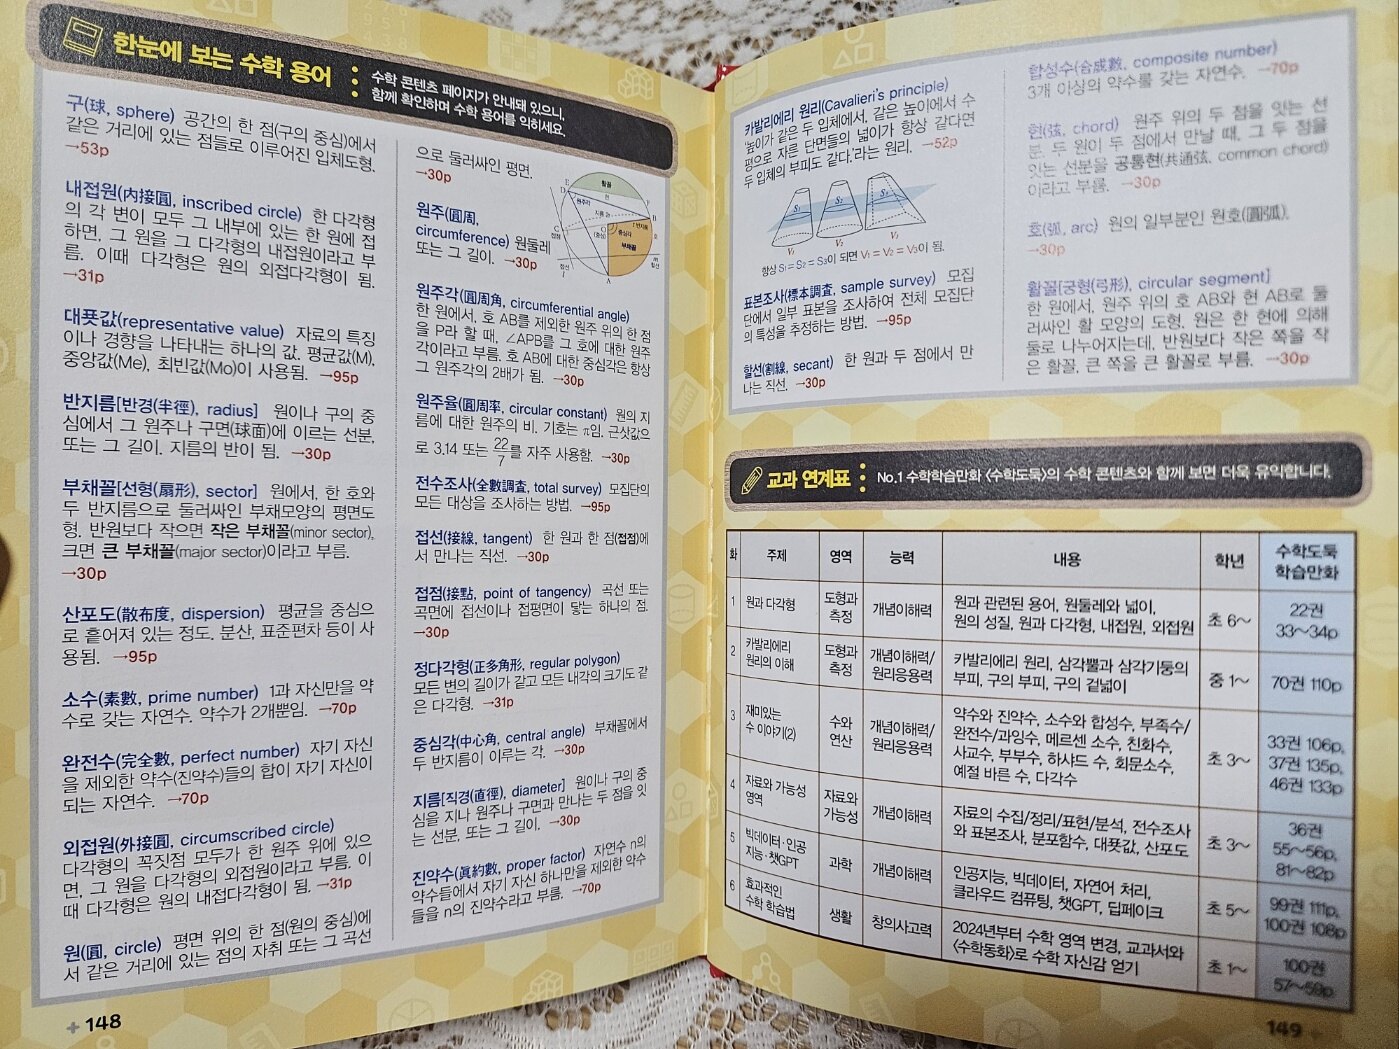 한눈에 보는 수학 용어
수학 콘텐츠 페이지가 안내돼 있으니,
함께 확인하며 수학 용어를 익히세요.
구(球, sphere) 공간의 한 점(구의 중심)에서
같은 거리에 있는 점들로 이루어진 입체도형.
→53p
내접원(內接圓, inscribed circle) 한 다각형
의 각 변이 모두 그 내부에 있는 한 원에 접
하면, 그 원을 그 다각형의 내접원이라고 부
름. 이때 다각형은 원의 외접다각형이 됨.
→31p
대푯값(representative value) 자료의 특징
이나 경향을 나타내는 하나의 값. 평균값(M),
중앙값(Me), 최빈값(Mo)이 사용됨. →95p
반지름[반경(半徑), radius] 원이나 구의 중
심에서 그 원주나 구면(球面)에 이르는 선분,
또는 그 길이. 지름의 반이 됨. →30p
부채꼴[선형(扇形), sector] 원에서, 한 호와
두 반지름으로 둘러싸인 부채모양의 평면도
형. 반원보다 작으면 작은 부채꼴(minor sector),
크면 큰 부채꼴(major sector)이라고 부름.
→30p
산포도(散布度, dispersion) 평균을 중심으
로 흩어져 있는 정도. 분산, 표준편차 등이 사
용됨. →95p
소수(素數, prime number) 1과 자신만을 약
수로 갖는 자연수. 약수가 2개뿐임. →70p
완전수(完全數, perfect number) 자기 자신
을 제외한 약수(진약수)들의 합이 자기 자신이
되는 자연수. →70p
외접원(外接圓, circumscribed circle)
다각형의 꼭짓점 모두가 한 원주 위에 있으
면, 그 원을 다각형의 외접원이라고 부름. 이
때 다각형은 원의 내접다각형이 됨. →31p
원(圓, circle) 평면 위의 한 점(원의 중심)에
서 같은 거리에 있는 점의 자취 또는 그 곡선
으로 둘러싸인 평면.
→30p
원주(圓周,
circumference) 원둘레
또는 그 길이. →30p
활꼴
E
D
현
F
원주각
지름
B
반지름
C
O
(중심)
중심각
호
접점
부채꼴
접선
할선
A
원주각(圓周角, circumferential angle)
한 원에서, 호 AB를 제외한 원주 위의 한 점
을 P라 할 때, ∠APB를 그 호에 대한 원주
각이라고 부름. 호 AB에 대한 중심각은 항상
그 원주각의 2배가 됨. →30p
원주율(圓周率, circular constant) 원의 지
름에 대한 원주의 비. 기호는 π임. 근삿값으
로 3.14 또는 22/7를 자주 사용함. →30p
전수조사(全數調査, total survey) 모집단의
모든 대상을 조사하는 방법. →95p
접선(接線, tangent) 한 원과 한 점(접점)에
서 만나는 직선. →30p
접점(接點, point of tangency) 곡선 또는
곡면에 접선이나 접평면이 닿는 하나의 점.
→30p
정다각형(正多角形, regular polygon)
모든 변의 길이가 같고 모든 내각의 크기도 같
은 다각형. →31p
중심각(中心角, central angle) 부채꼴에서
두 반지름이 이루는 각. →30p
지름[직경(直徑), diameter] 원이나 구의 중
심을 지나 원주나 구면과 만나는 두 점을 잇
는 선분, 또는 그 길이. →30p
진약수(眞約數, proper factor) 자연수 n의
약수들에서 자기 자신 하나만을 제외한 약수
들을 n의 진약수라고 부름. →70p
148
카발리에리 원리(Cavalieri's principle)
'높이가 같은 두 입체에서, 같은 높이에서 수
평으로 자른 단면들의 넓이가 항상 같다면
두 입체의 부피도 같다.'라는 원리. →52p
S₁
S₂
S₃
V₁
V₂
V₃
항상 S₁ = S₂ = S₃이 되면 V₁ = V₂ = V₃이 됨.
표본조사(標本調査, sample survey) 모집
단에서 일부 표본을 조사하여 전체 모집단
의 특성을 추정하는 방법. →95p
할선(割線, secant) 한 원과 두 점에서 만
나는 직선. →30p
합성수(合成數, composite number)
3개 이상의 약수를 갖는 자연수. →70p
현(弦, chord) 원주 위의 두 점을 잇는 선
분. 두 원이 두 점에서 만날 때, 그 두 점을
잇는 선분을 공통현(共通弦, common chord)
이라고 부름. →30p
호(弧, arc) 원의 일부분인 원호(圓弧).
→30p
활꼴[궁형(弓形), circular segment]
한 원에서, 원주 위의 호 AB와 현 AB로 둘
러싸인 활 모양의 도형. 원은 한 현에 의해
둘로 나누어지는데, 반원보다 작은 쪽을 작
은 활꼴, 큰 쪽을 큰 활꼴로 부름. →30p
교과 연계표
No.1 수학학습만화 〈수학도둑〉의 수학 콘텐츠와 함께 보면 더욱 유익합니다.
화 주제 영역 능력 내용 학년 수학도둑
학습만화
1 원과 다각형 도형과
측정 개념이해력 원과 관련된 용어, 원둘레와 넓이,
원의 성질, 원과 다각형, 내접원, 외접원 초 6~ 22권
33~34p
2 카발리에리
원리의 이해 도형과
측정 개념이해력/
원리응용력 카발리에리 원리, 삼각뿔과 삼각기둥의
부피, 구의 부피, 구의 겉넓이 중 1~ 70권 110p
3 재미있는
수 이야기(2) 수와
연산 개념이해력/
원리응용력 약수와 진약수, 소수와 합성수, 부족수/
완전수/과잉수, 메르센 소수, 친화수,
사교수, 부부수, 하샤드 수, 회문소수,
예절 바른 수, 다각수 초 3~ 33권 106p,
37권 135p,
46권 133p
4 자료와 가능성
영역 자료와
가능성 개념이해력 자료의 수집/정리/표현/분석, 전수조사
와 표본조사, 분포함수, 대푯값, 산포도 초 3~ 36권
55~56p,
81~82p
5 빅데이터·인공
지능·챗GPT 과학 개념이해력 인공지능, 빅데이터, 자연어 처리,
클라우드 컴퓨팅, 챗GPT, 딥페이크 초 5~ 99권 111p,
100권 108p
6 효과적인
수학 학습법 생활 창의사고력 2024년부터 수학 영역 변경, 교과서와
〈수학동화〉로 수학 자신감 얻기 초 1~ 100권
57~59p
149